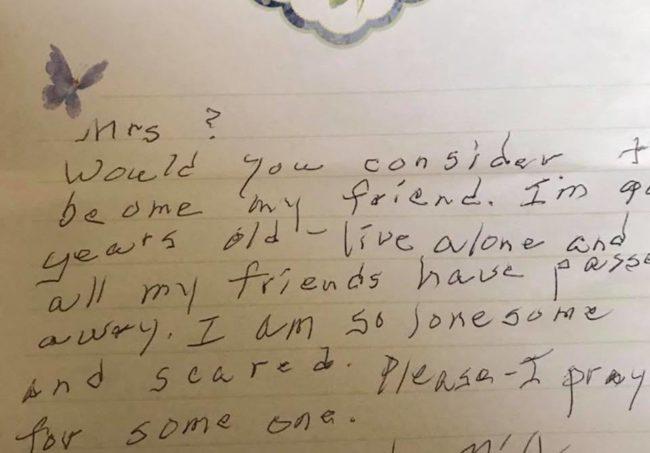 Mrs ?
Would you consider
be ome my friend. I'm 90
years old - live alone and
all my friends have passe
away. I am so lonesome
and scared. Please - I pray
for some one.